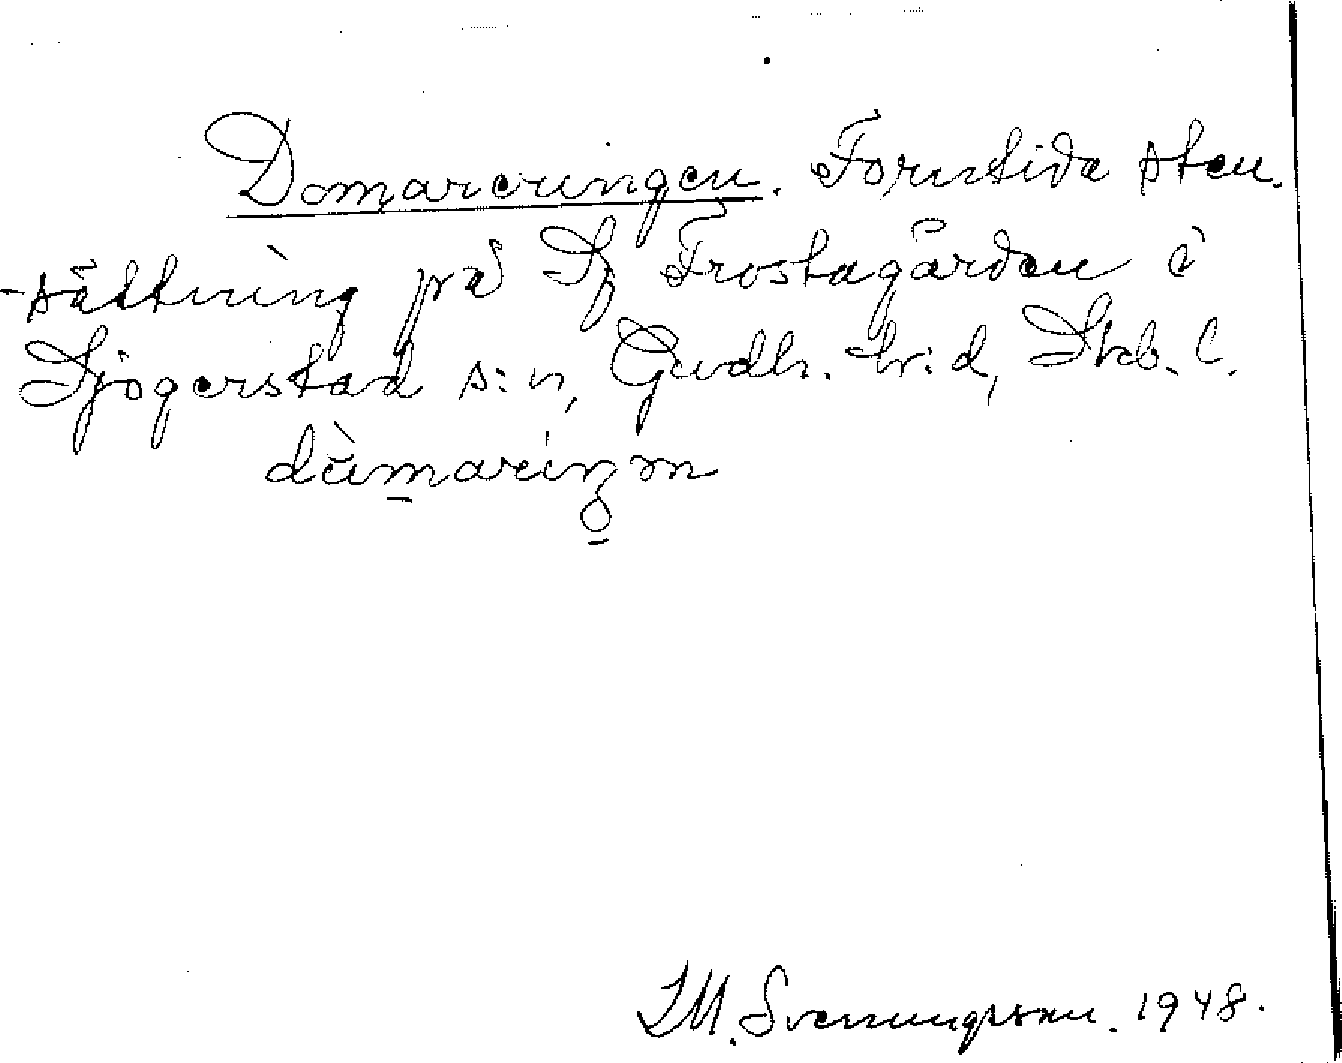 Domareringen. Forntida sten-
-sättning på Sf Frostagården i
Sjögerstad s:n, Gudh. hr:d, Skb. l.
dùmariŋən
S.M. Svenungsson. 1948.